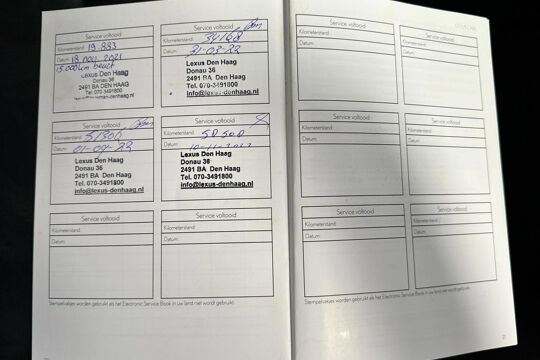 Service voltooid
Kilometerstand: 19.883
Datum: 18 nov. 2021
15.000km beurt
Lexus Den Haag
Donau 36
2491 BA DEN HAAG
Tel. 070-3491800
Service voltooid
Kilometerstand:
Datum: 31-03-22
Lexus Den Haag
Donau 36
2491 BA DEN HAAG
Tel. 070-3491800
info@lexus-denhaag.nl
Service voltooid
Kilometerstand:
Datum:
Lexus Den Haag
Donau 36
2491 BA Den Haag
Tel. 070-3491800
info@lexus-denhaag.nl
Service voltooid
Kilometerstand:
Datum:
Lexus Den Haag
Donau 36
2491 BA Den Haag
Tel. 070-3491800
info@lexus-denhaag.nl
Service voltooid
Kilometerstand:
Datum:
Service voltooid
Kilometerstand:
Datum:
Stempelvakjes worden gebruikt als het Electronic Service Book in uw land niet wordt gebruikt.
Service voltooid
Kilometerstand:
Datum:
Service voltooid
Kilometerstand:
Datum:
Service voltooid
Kilometerstand:
Datum:
Service voltooid
Kilometerstand:
Datum:
Service voltooid
Kilometerstand:
Datum:
Service voltooid
Kilometerstand:
Datum:
Stempelvakjes worden gebruikt als het Electronic Service Book in uw land niet wordt gebruikt.